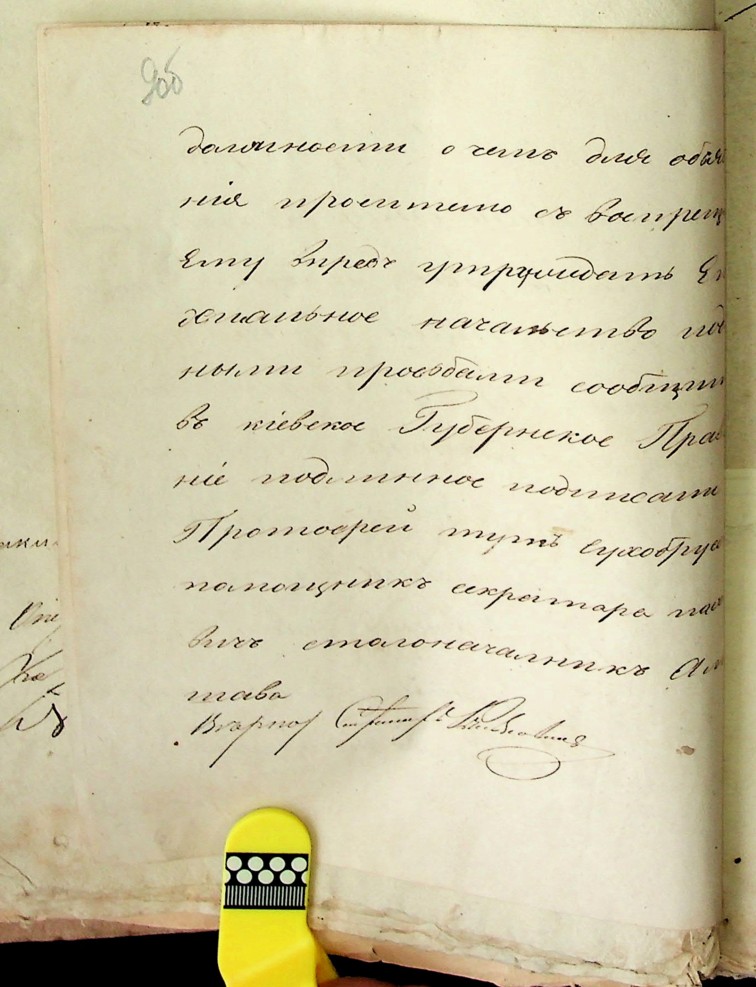 206
должности о чемъ для объяв
нія просителю съ воспрещ
Ему впредь утруждать Еп
хіальное начальство под
ными прозбами сообщит
въ кіевское Губернское Прав
ніе подлинное подписали
Протоіерей Сухобрус
помощникъ секретаря пав
вичъ столоначалникъ Ал
тава
Вѣрно